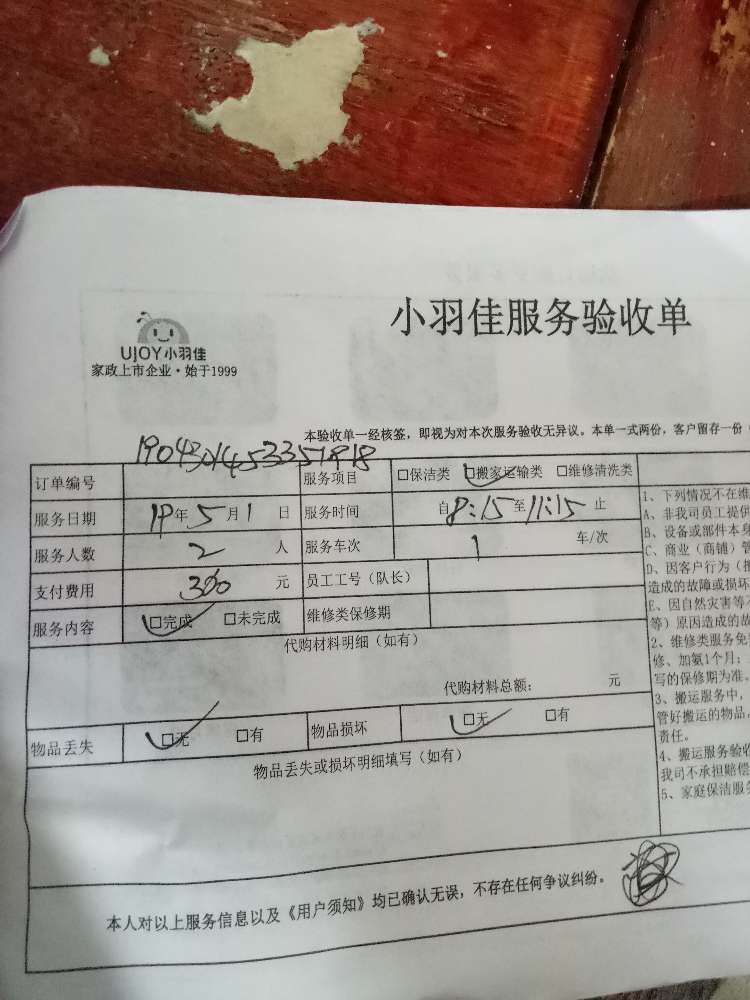 小羽佳服务验收单
UJOY小羽佳
家政上市企业·始于1999
本验收单一经核签，即视为对本次服务验收无异议。本单一式两份，客户留存一份
订单编号 服务项目 □保洁类 □搬家运输类 □维修清洗类
服务日期 19年5月1日 服务时间 自8:15至11:15止
服务人数 2人 服务车次 1 车/次
支付费用 300元 员工工号（队长）
服务内容 □完成 □未完成 维修类保修期
代购材料明细（如有）
代购材料总额： 元
物品丢失 □无 □有 物品损坏 □无 □有
物品丢失或损坏明细填写（如有）
本人对以上服务信息以及《用户须知》均已确认无误，不存在任何争议纠纷。
1、下列情况不在维
A、非我司员工提供
B、设备或部件本身
C、商业（商铺）管
D、因客户行为（搬
造成的故障或损坏
E、因自然灾害等不
等）原因造成的故
2、维修类服务免
修、加氨1个月；
写的保修期为准。
3、搬运服务中，
管好搬运的物品，
责任。
4、搬运服务验收
我司不承担赔偿
5、家庭保洁服务